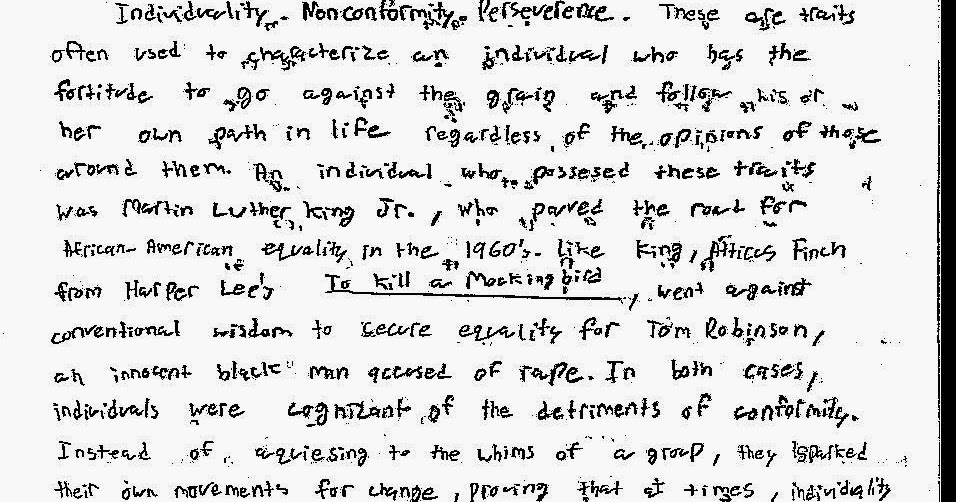 Individuality. Nonconformity. Perseverence. These are traits
often used to characterize an individual who has the
fortitude to go against the grain and follow his or
her own path in life regardless of the opinions of those
around them. An individual who possesed these traits
was Martin Luther King Jr., who paved the road for
African-American equality in the 1960's. Like King, Atticus Finch
from Harper Lee's To Kill a Mockingbird, went against
conventional wisdom to secure equality for Tom Robinson,
an innocent black man accused of rape. In both cases,
individuals were cognizant of the detriments of conformity.
Instead of aquiesing to the whims of a group, they sparked
their own movements for change, proving that at times, individuality